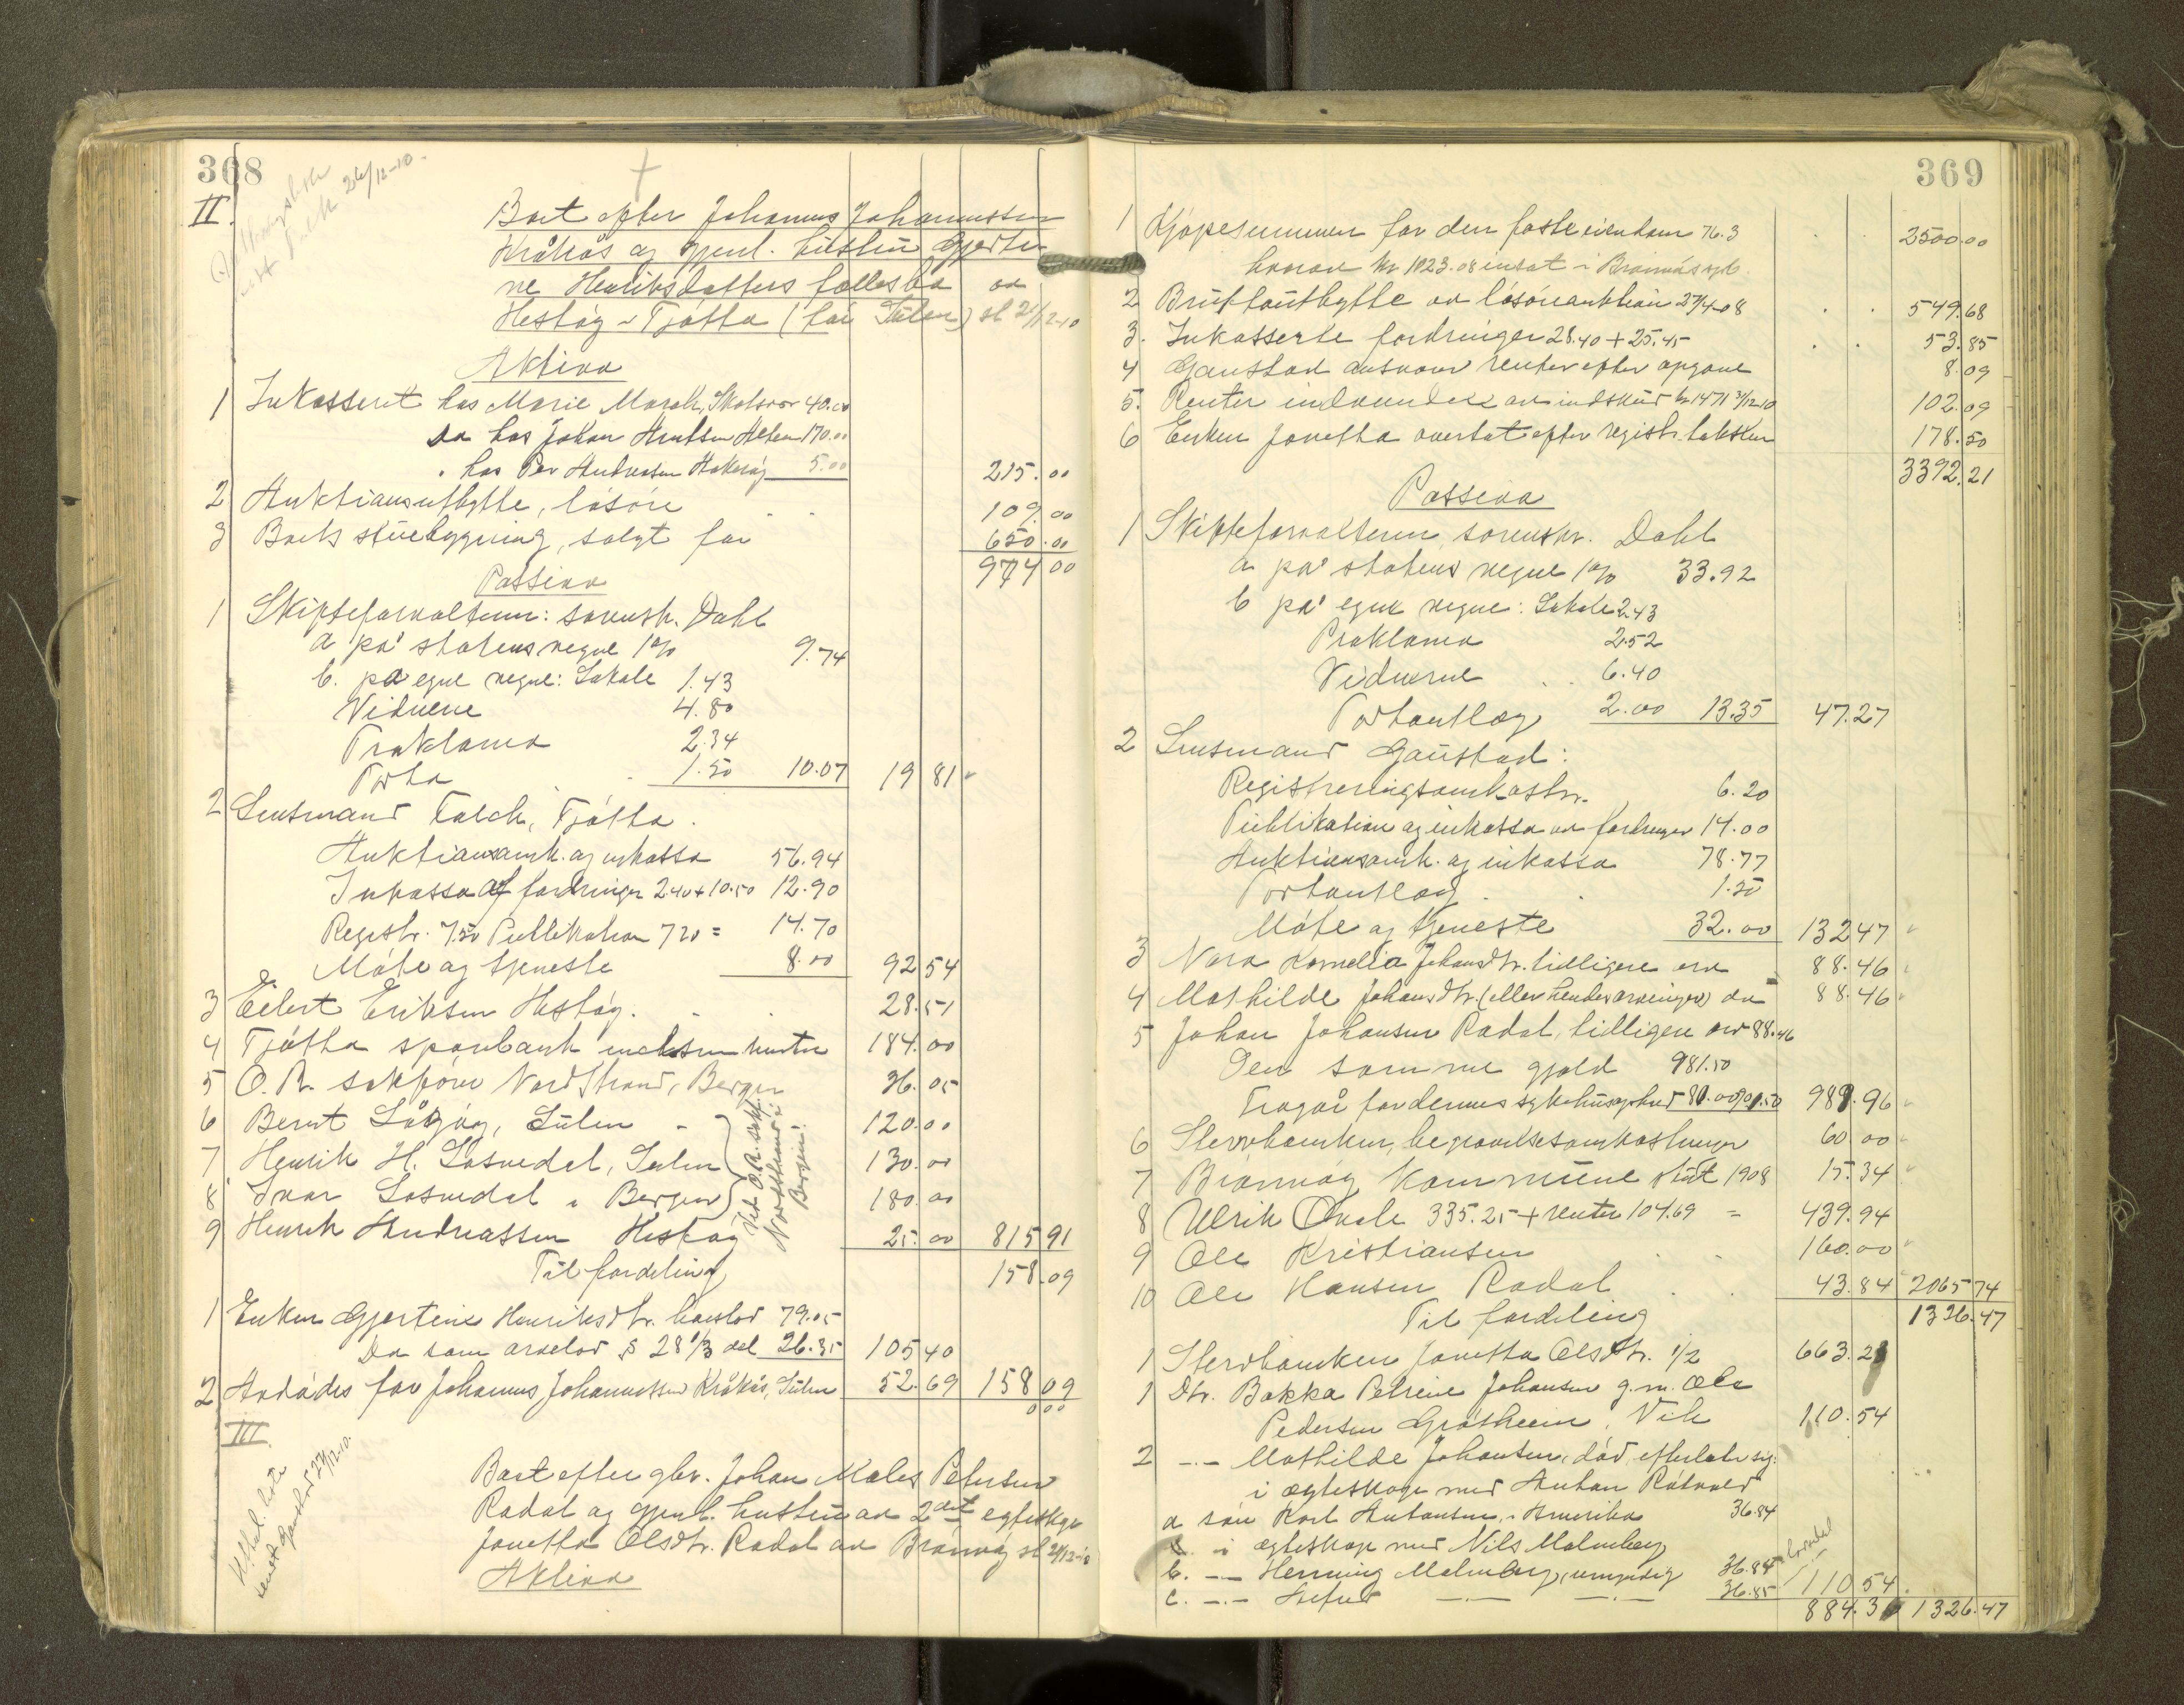 368
II.
Boet efter Johannes Johannessen
Kråkås og gjenl. hustru Gjerti-
ne Henriksdatters fællesbo av
Hestøy - Tjøtta (fra Sulen) sl 21/12-10
Aktiva
1 Inkasserit hos Marie Marak, Skotsvær 40.00
Do hos Johan Knutsen Alten 170.00
" hos Per Andreasen Hakeøy 5.00 215.00
2 Auktionsutbytte, løsøre 109.00
3 Boets stuebygning, solgt for 650.00
974 00
Passiva
1 Skifteforvalteren: sorensk. Dahl
a på statens vegne 1% 9.74
b. på egne vegne: Lokale 1.43
Vidnene 4.80
Proklama 2.34
Porto 1.50 10.07 19 81
2 Lensmand Falch, Tjøtta.
Auktionsomk. og inkasso 56.94
Inkasso af fordringer 2.40+10.50 12.90
Registr. 7.50 Publikation 7 20 = 14.70
Møte og tjeneste 8.00 92 54
3 Eilert Eriksen Hestøy. 28.51
4 Tjøtta sparebank veksen renter 184.00
5 O.R. sakfører Nordstrand, Bergen 36.05
6 Bernt Låg øy, Sulen 120.00
7 Henrik H. Losnedal, Sulen 130.00
8 Ivar Losnedal i Bergen 180.00
Ved O.R. sakf.
Nordstrand i
Bergen.
9 Henrik Andreassen Hestøy 25.00 815 91
Til fordeling 158.09
1 Enken Gjertine Henriksdtr. boeslod 79.05
Do som arvelod § 28 1/3 del 26.35 105 40
2 Avdødes far Johannes Johannessen Kråkås, Sulen 52.69 158 09
000
III
Boet efter gbr. Johan Males Petersen
Rodal og gjenl. hustru av 2det egteskap
Jonetta Olsdtr. Rodal av Brønnøy sl 21/12-10
Aktiva
369
1 Kjøpesummen for den faste eiendom 76.3 2500.00
hvorav kr 1023.08 insat i Brønnøs spb.
2 Bruttoutbytte av løsøreauktion 27/4-08 549.68
3. Inkasserte fordringer 28.40+25.45 53.85
4 Gaustad ansvar renter efter opgave 8.09
5. Renter indvundne av indskud kr 1471 3/12 10 102.09
6 Enken Jonetta overtat efter registr. taksten 178.50
3392.21
Passiva
1 Skifteforvalteren, sorenskr. Dahl
a på statens vegne 1% 33.92
b på egne vegne: Lokale 2.43
Proklama 2.52
Vidnerne 6.40
Portoutlæg 2.00 13.35 47.27
2 Lensmand Gaustad:
Registreringsomkostn. 6.20
Publikation og inkasso av fordringer 14.00
Auktionsomk. og inkasso 78.77
Portoutlæg 1.50
Møte og tjeneste 32.00 132 47
3 Nora Kornelia Johansdtr. tidligere arv 88.46
4 Mathilde Johansdtr. (eller hendes arvinger) do 88.46
5 Johan Johansen Rodal, tidligere arv 88.46
Den samme gjæld 981.50
Fragår for dennes sykehusophold 80.00 901.50 989.96
6 Stervboenken, begravelsesomkostninger 60 00
7 Brønnøy Kommune skat 1908 15.34
8 Ulrik Qvale 335.25 + renter 104.69 = 439.94
9 Ole Kristiansen 160.00
10 Ole Hansen Rodal 43.84 2065 74
Til fordeling 1326.47
1 Stervboenken Jonetta Olsdtr. 1/2 663.23
1 Dtr. Bokka Petrine Johansen g.m. Ole
Pedersen Grøtheim, Vik 110.54
2 -"- Mathilde Johansen, død, efterlater sig:
i ægteskap med Anton Råtvold
a søn Karl Antonsen, Amerika 36.84
i ægteskap med Nils Malmberg
b. -"- Henning Malmberg, umyndig 36.84
c. -"- -"- -"- 36.85 110 54
884.31 1326.47